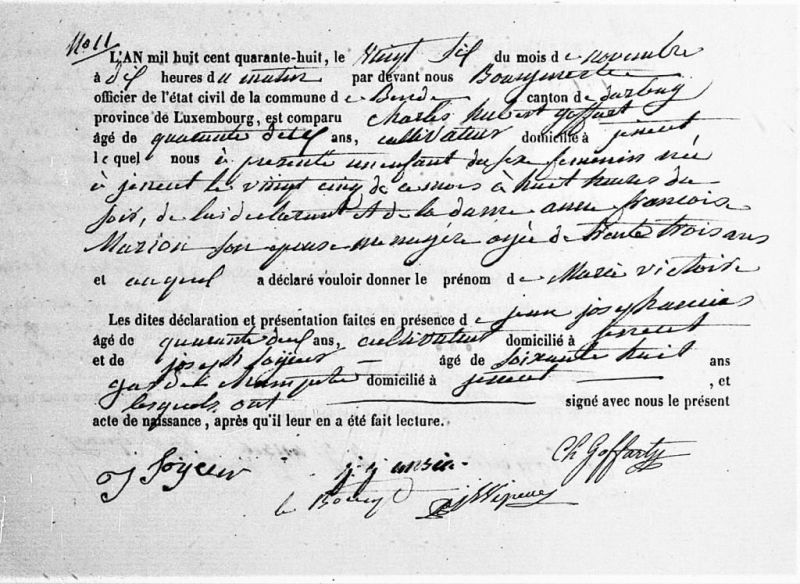 No 11
L'AN mil huit cent quarante-huit, le vingt six du mois de novembre
à dix heures du matin par devant nous Bourgmestre
officier de l'état civil de la commune de Bende canton de durbuy
province de Luxembourg, est comparu Charles hubert goffart
âgé de quarante deux ans, cultivateur domicilié à jeneret
lequel nous à présenté un enfant du sex feminin née
à jeneret le vingt cinq de ce mois à huit heures du
soir, de lui déclarant et de la dame anne francoise
Marion son epouse menagére agée de trente trois ans
et auquel a déclaré vouloir donner le prénom de Marie victoire
Les dites déclaration et présentation faites en présence de jean joseph
âgé de quarante deux ans, cultivateur domicilié à jeneret
et de joseph Soÿeur âgé de soixante huit ans
garde domicilié à jeneret , et
lesquels ont signé avec nous le présent
acte de naissance, après qu'il leur en a été fait lecture.
Ch Goffart
j Soÿeur j j
le Bourg